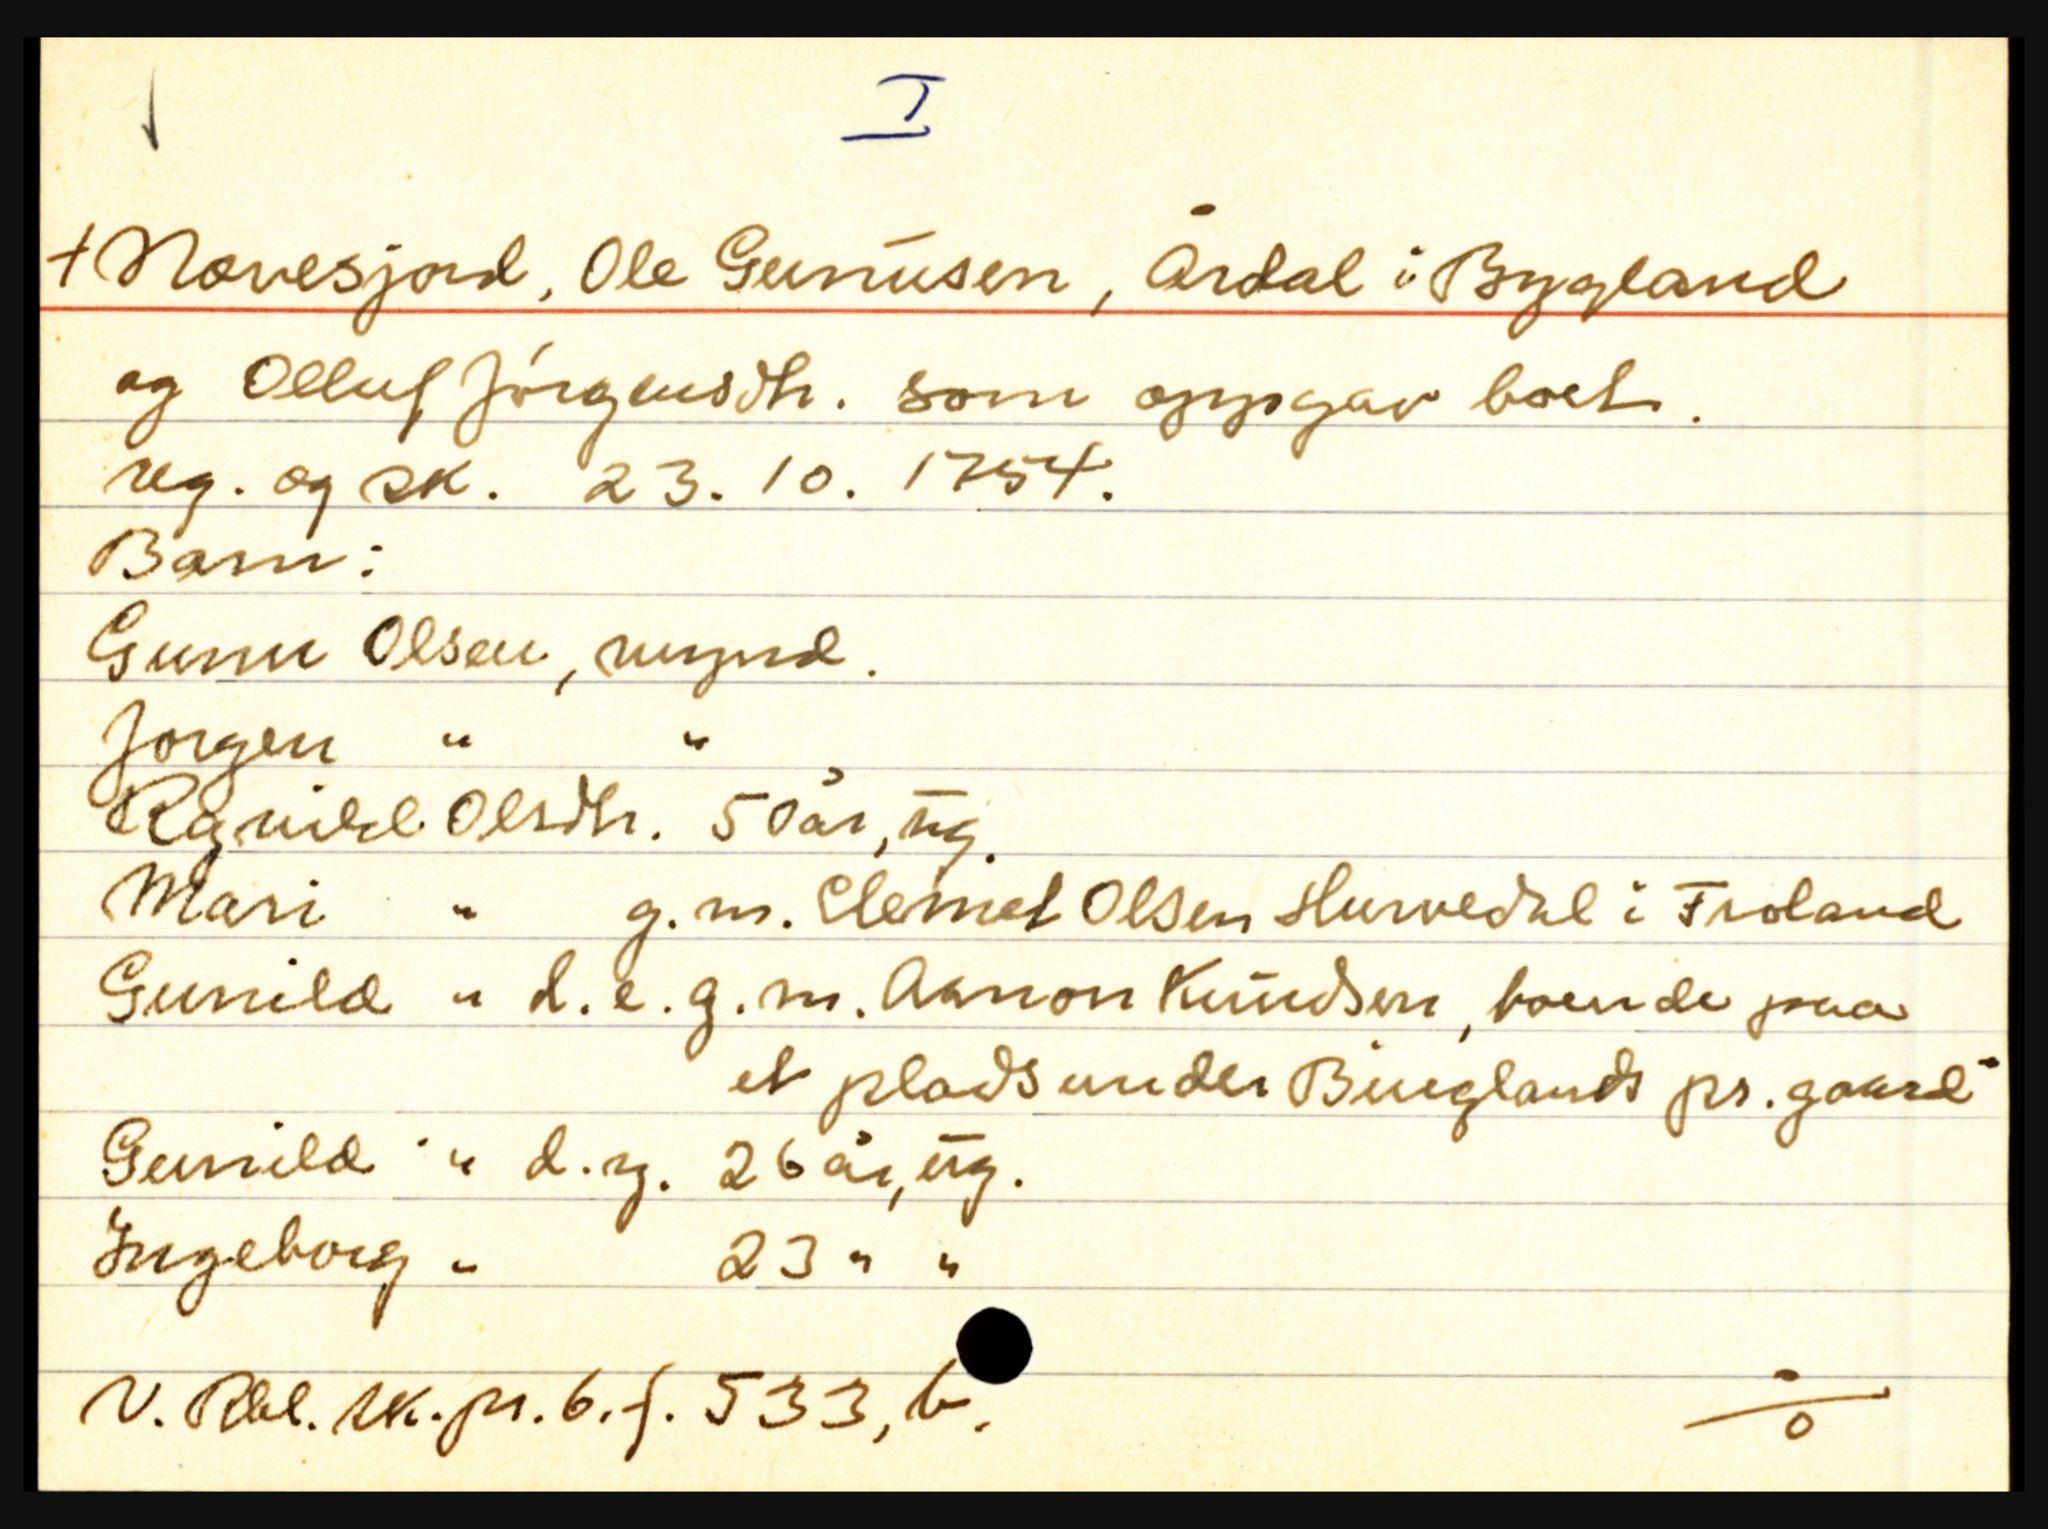 I
+ Novesjord, Ole Gunūsen, Årdal i Bygland
og Olluf Jórgensdtr. som oppgav boet.
reg. og sk. 23. 10. 1754.
Barn:
Gunu Olsen, mynd.
Jorgen " "
Rgnild Olsdtr. 50 år, ūg.
Mari " g. m. Clemet Olsen Hurvedal i Froland
Gunild " d. e. g. m. Aanon Knūdsen, boende paa
et plads under Buglands pr. gaard"
Gunild " d. y. 26 år, ūg.
Ingeborg " 23 " "
V. Rbl. sk. pr. 6. f. 533, b.